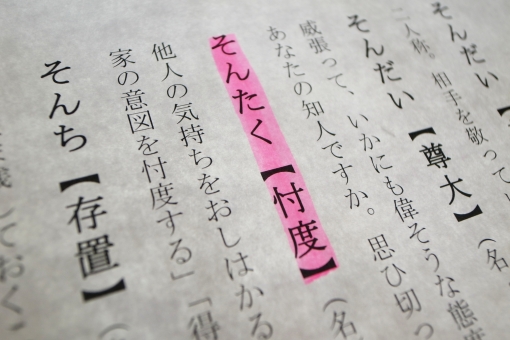 そんだい【
二人称。相手を敬ってい
そんだい【尊大】（名
威張って、いかにも偉そうな態度
あなたの知人ですか。思ひ切っ
そんたく【忖度】（名
他人の気持ちをおしはかる
家の意図を忖度する」「得
そんち【存置】（
ておく